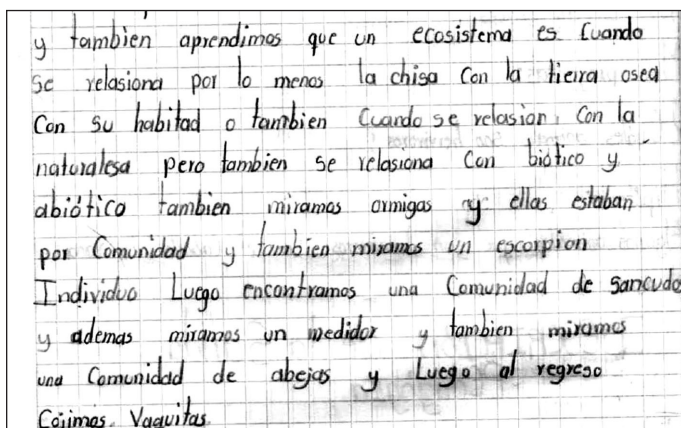 y tambien aprendimos que un ecosistema es Cuando
se relasiona por lo menos la chisa Con la tierra osea
Con Su habitad o tambien Cuando se relasion Con la
naturalesa pero tambien se relasiona Con biótico y
abiótico tambien miramos ormigas y ellas estaban
por Comunidad y tambien miramos un escorpion
Individuo Luego encontramos una Comunidad de Sancudos
y ademas miramos un medidor y tambien miramos
una Comunidad de abejas y Luego al regreso
Cojimos Vaquitas